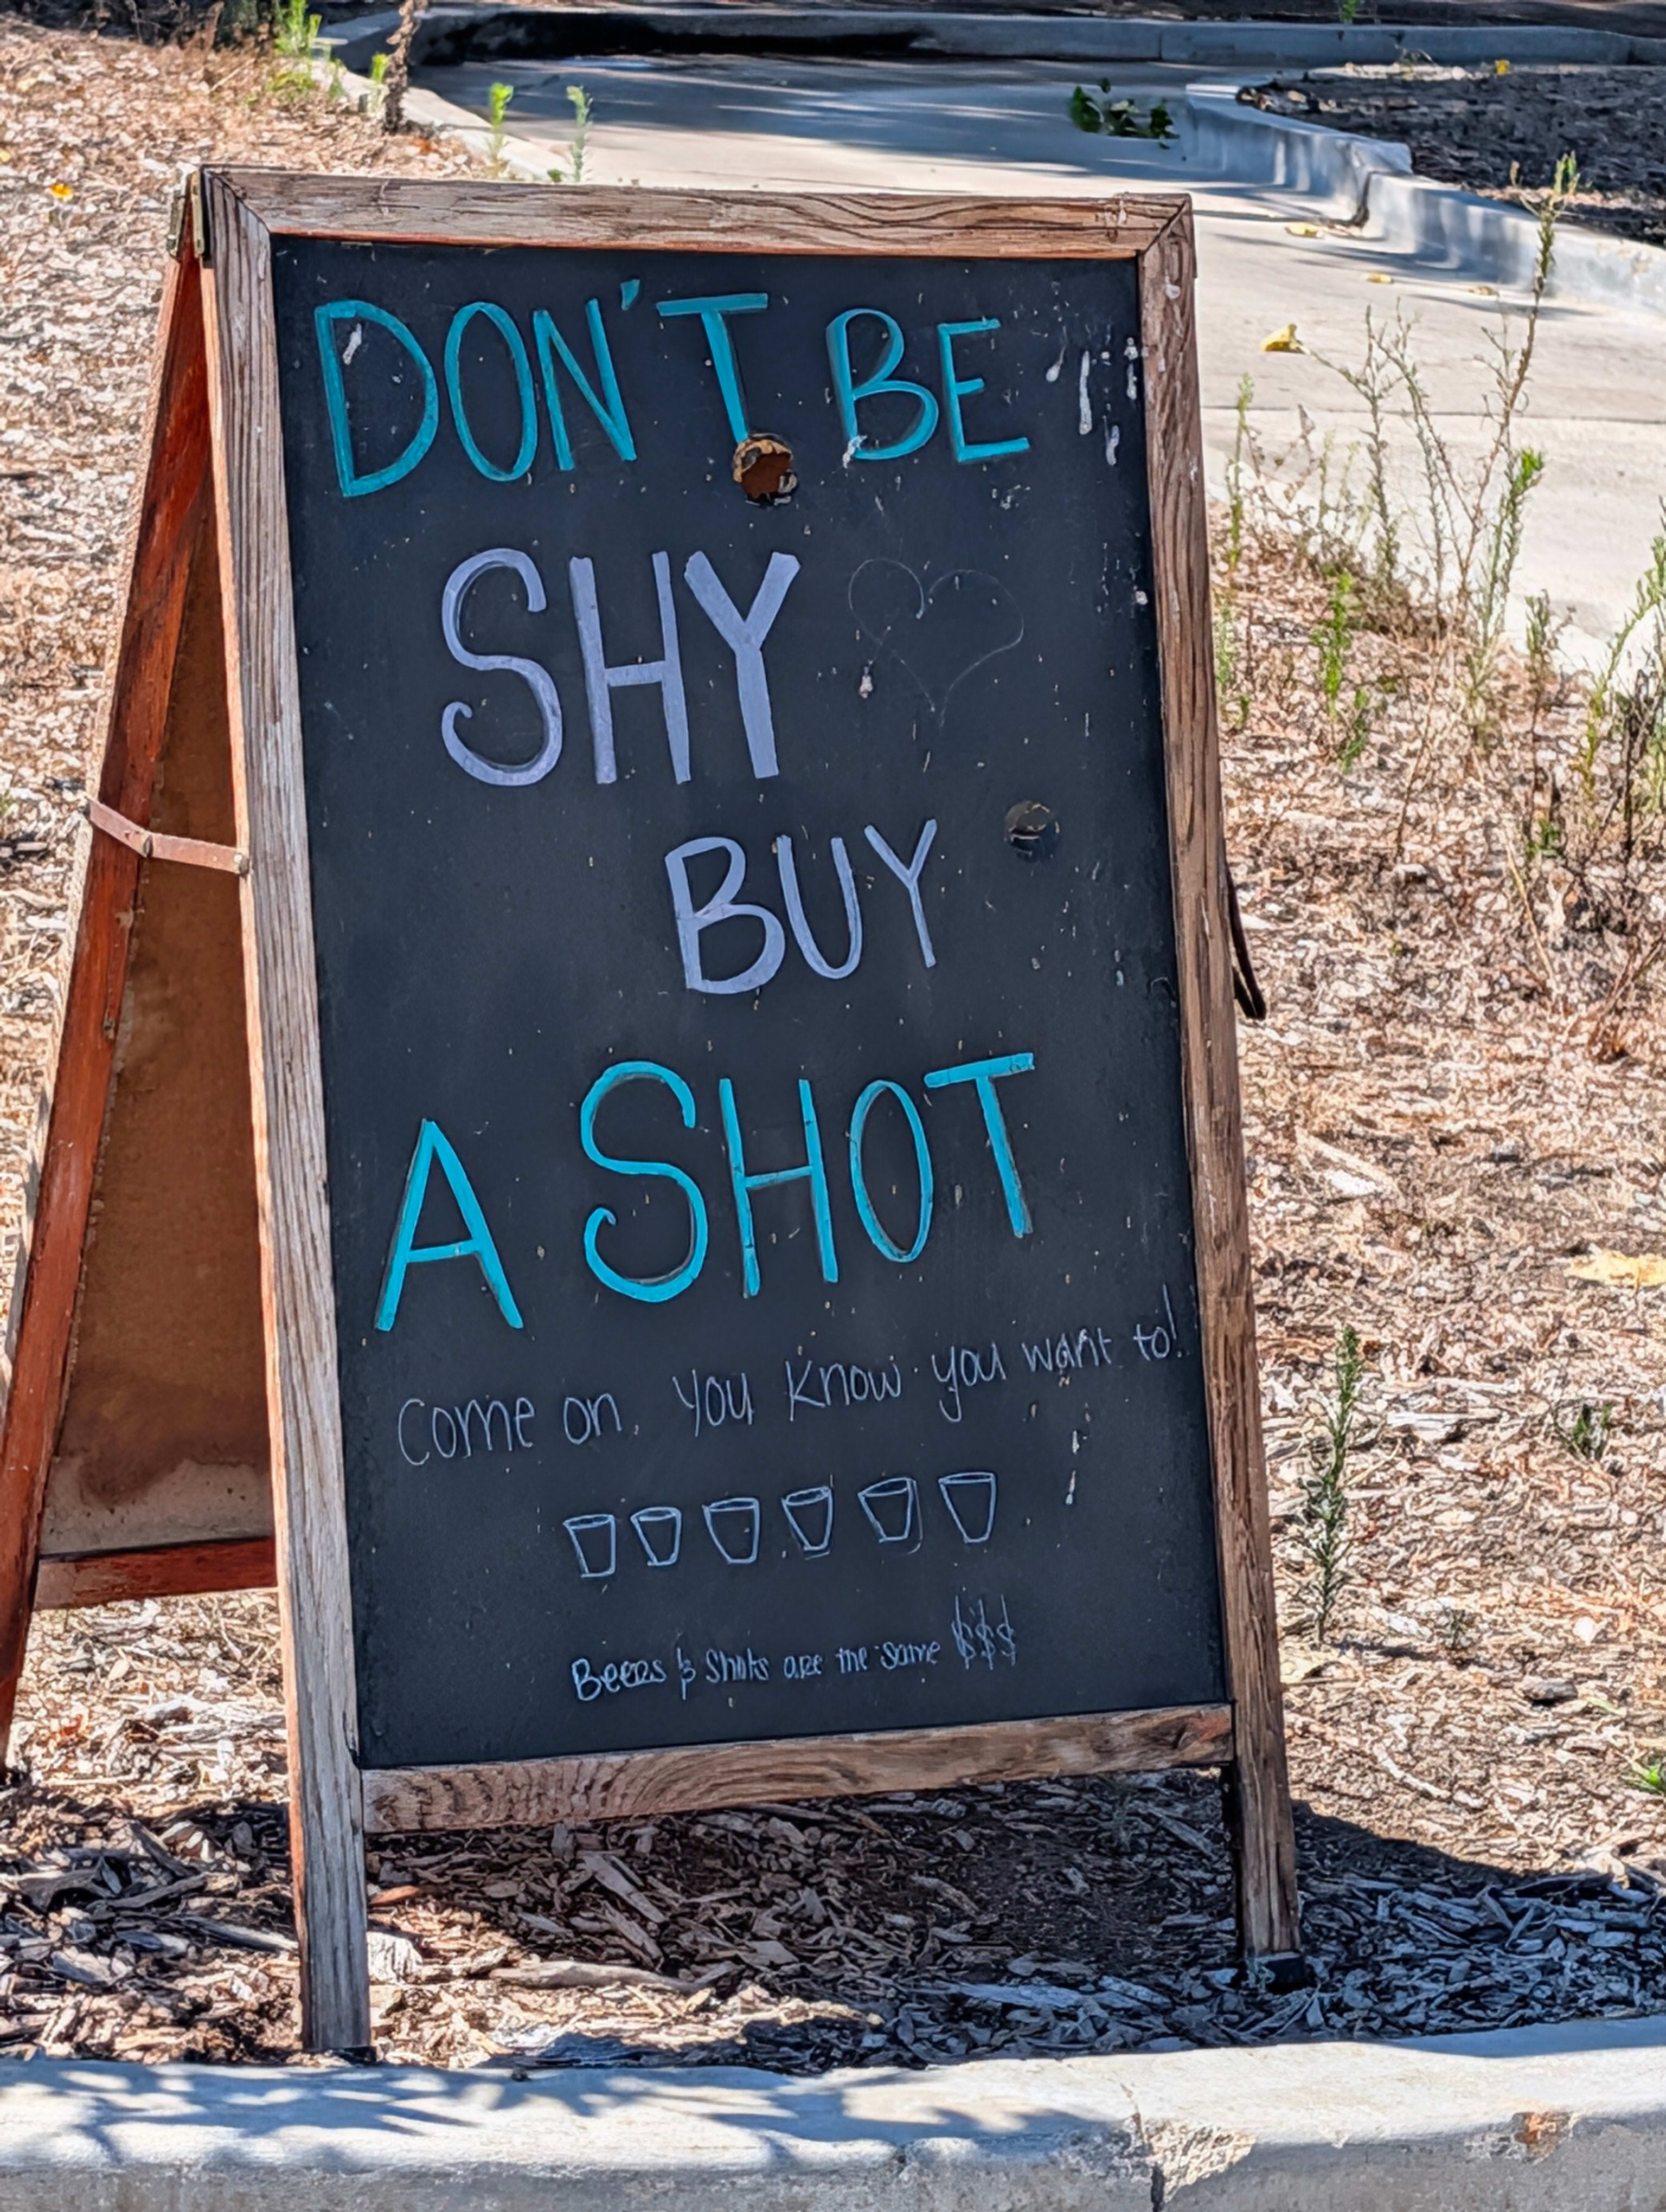 DON'T BE
SHY
BUY
A SHOT
Come on, you know you want to!
Beers & Shots are the same $$$